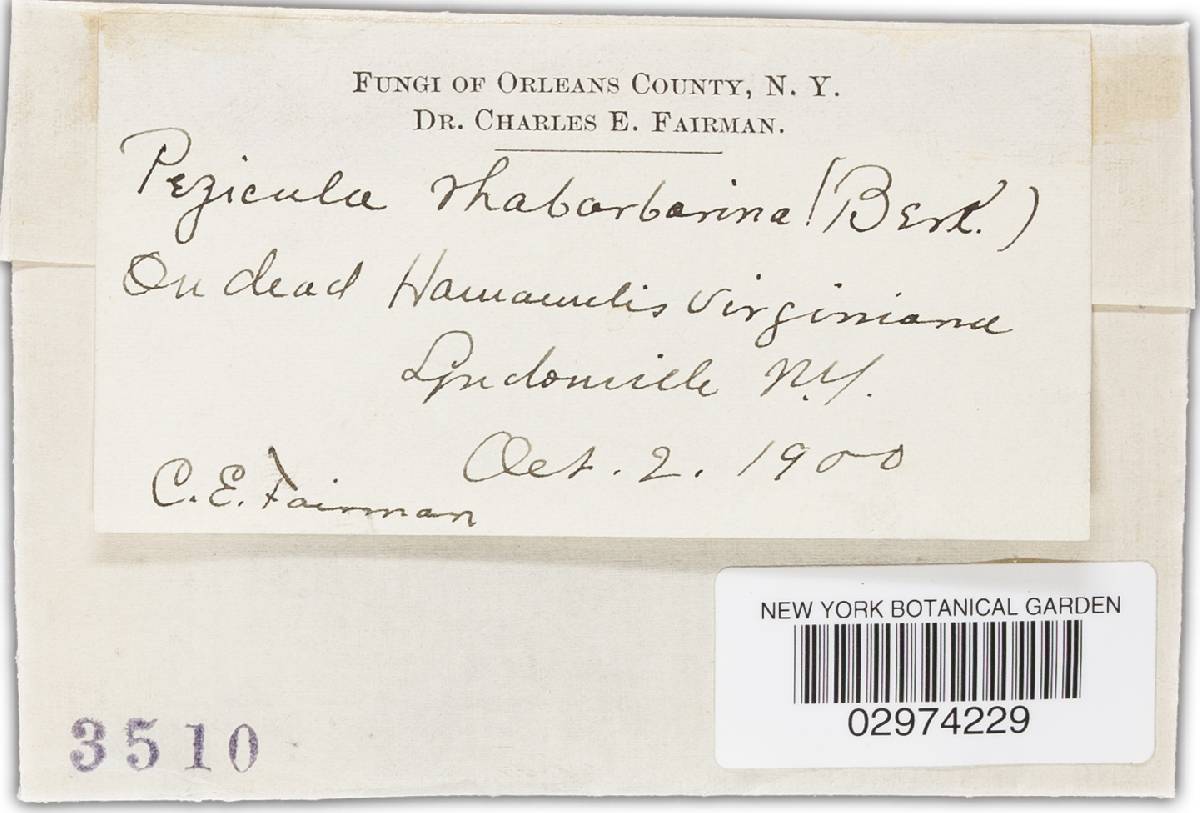 FUNGI OF ORLEANS COUNTY, N. Y.
DR. CHARLES E. FAIRMAN.
Pezicula rhabarbarina (Berk.)
On dead Hamamelis virginiana
Lyndonville N.Y.
Oct. 2. 1900
C. E. Fairman
NEW YORK BOTANICAL GARDEN
02974229
3510